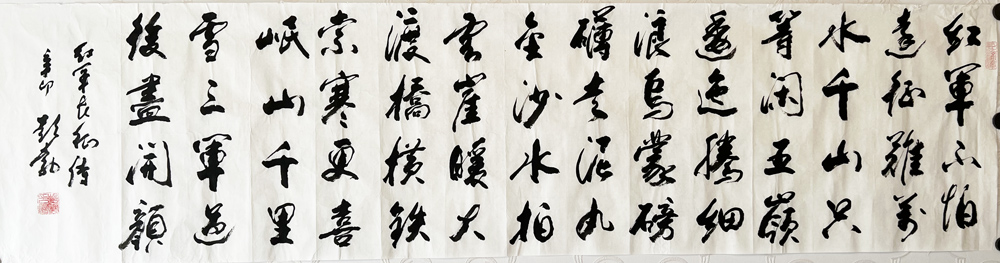 紅軍不怕
遠征難萬
水千山只
等閑五嶺
逶迤騰細
浪烏蒙磅
礴走泥丸
金沙水拍
雲崖暖大
渡橋橫鉄
索寒更喜
岷山千里
雪三軍過
後盡開顏
紅軍長征詩
辛卯